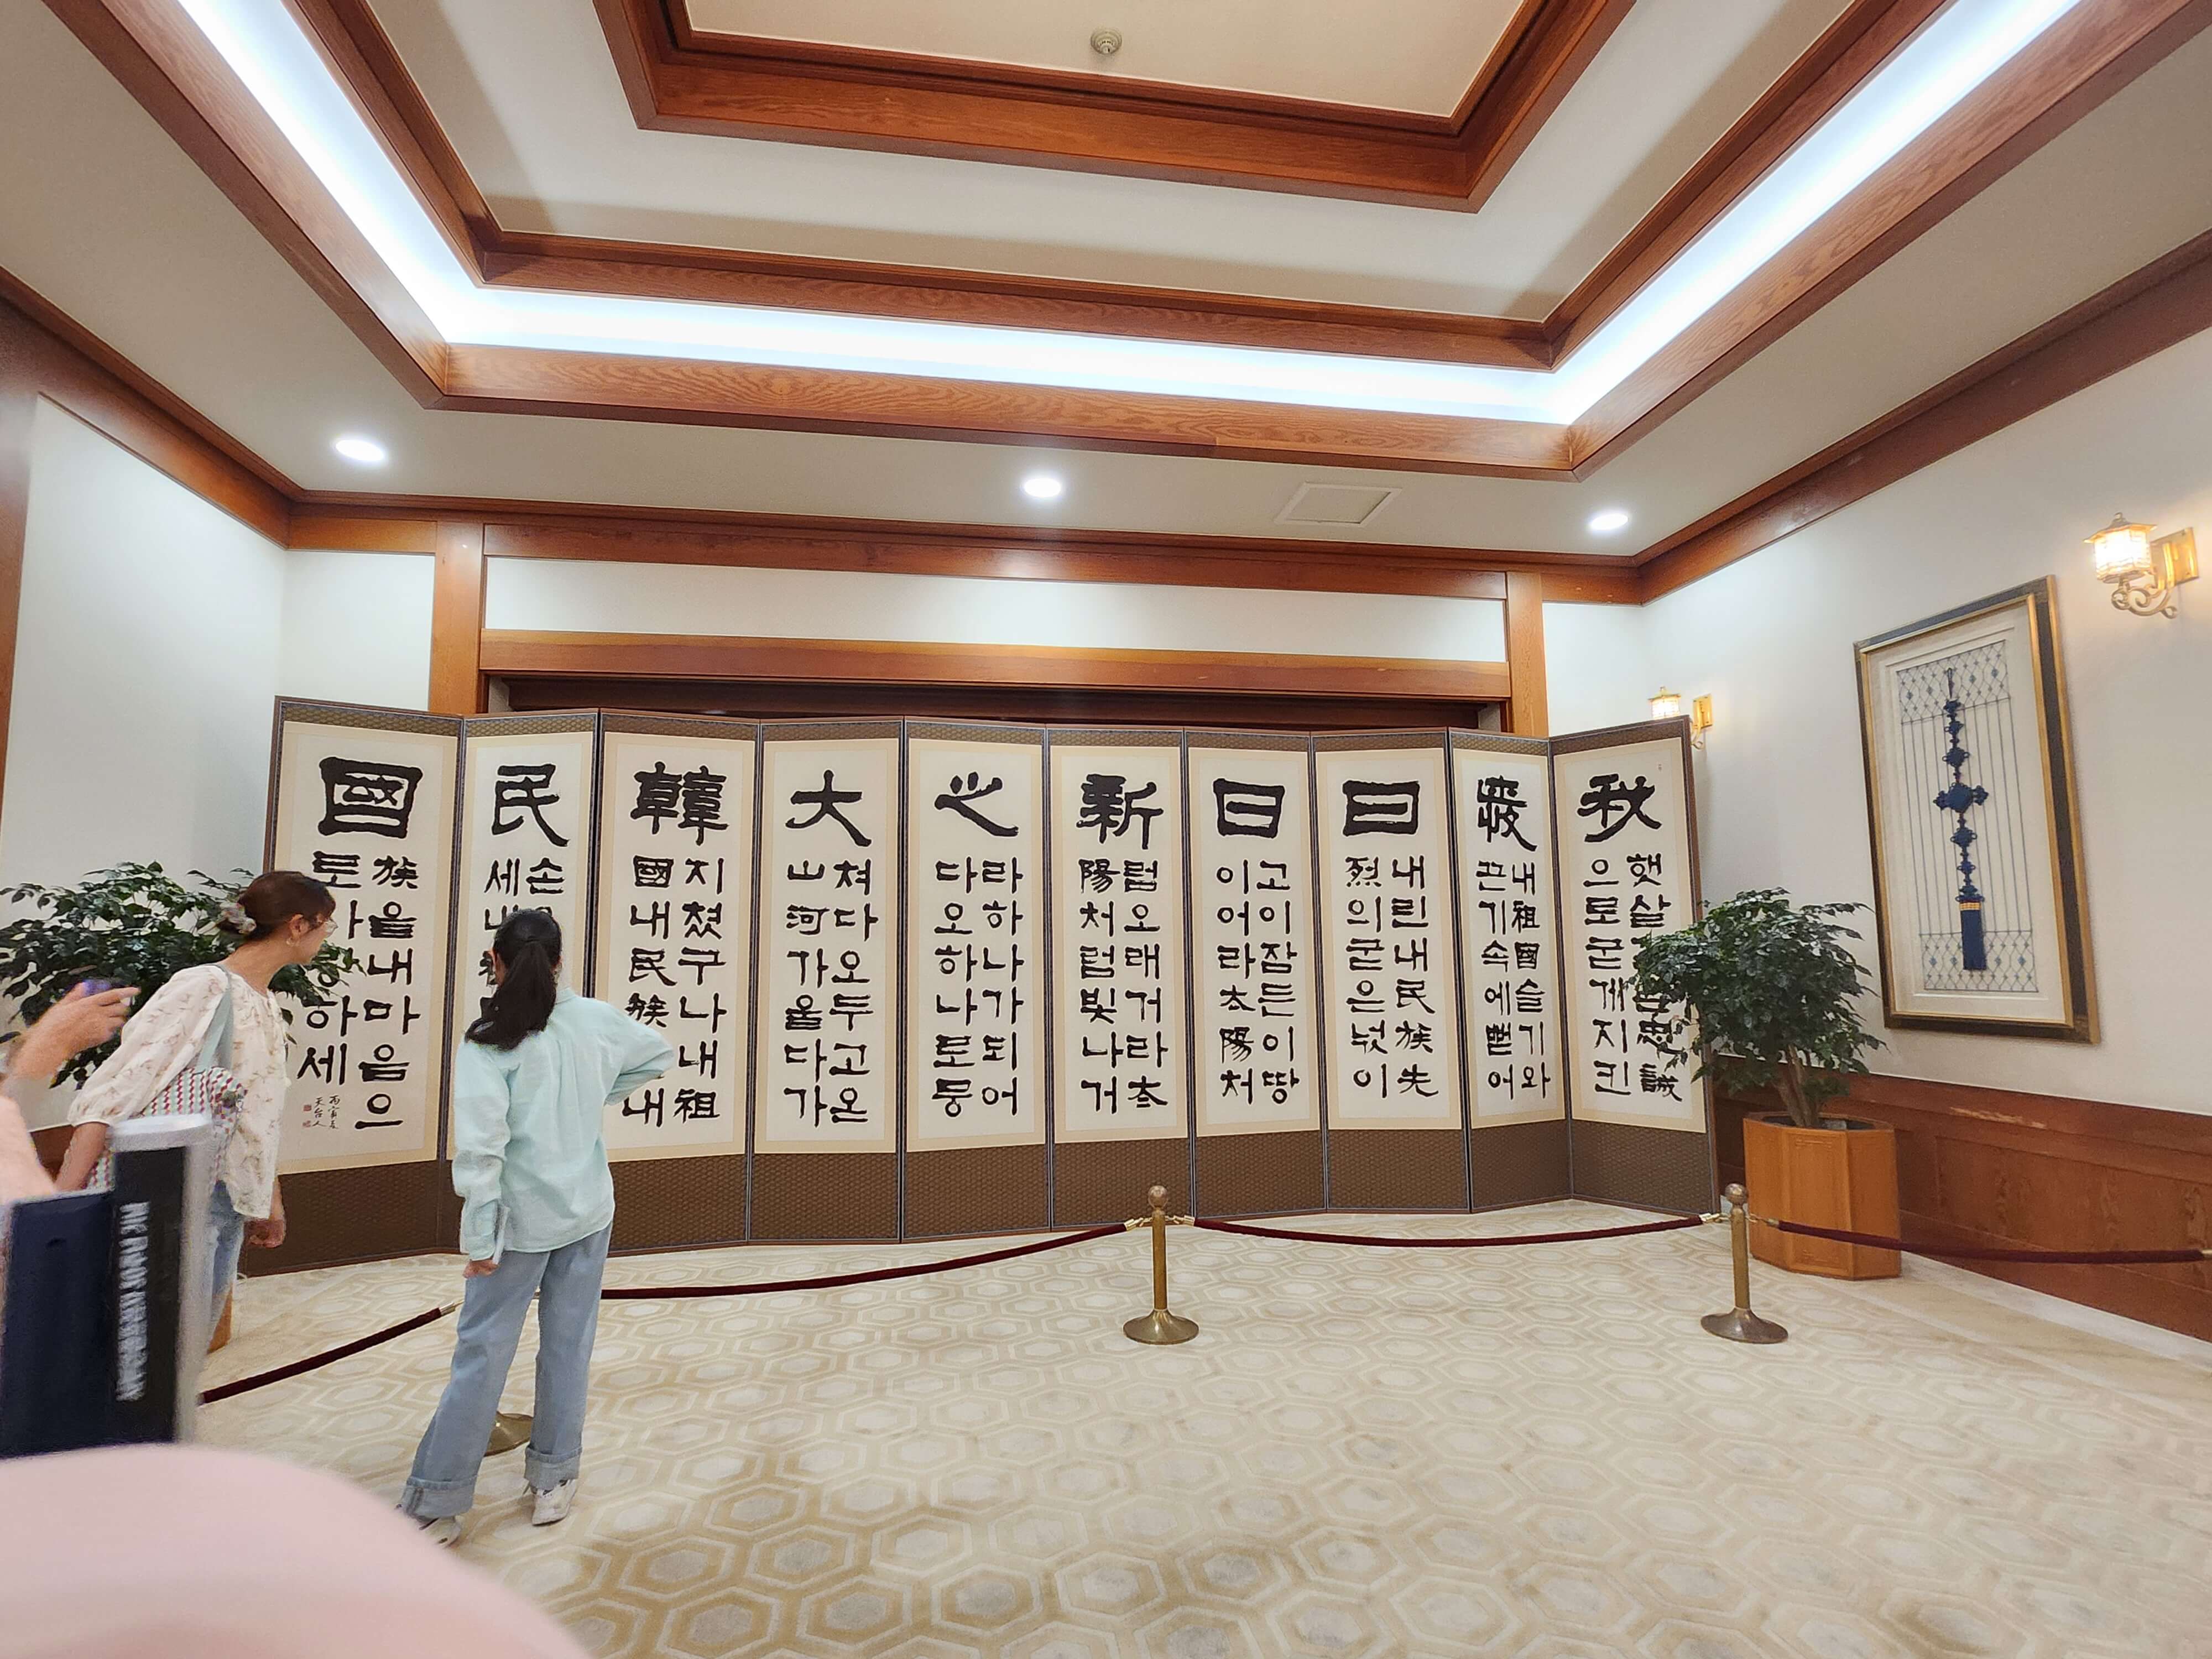 秋
햇살
忠誠
으로굳게지킨
내祖國슬기와
끈기속에뻗어
曰
내린내民族先
烈의굳은넋이
日
고이잠든이땅
이어라太陽처
新
럼오래거라太
陽처럼빛나거
之
라하나가되어
다오하나로뭉
大
쳐다오두고온
山河가울다가
韓
지쳤구나내祖
國내民族내
民
손
세내
國
族을내마음으
로
하세
丙寅夏
天台人